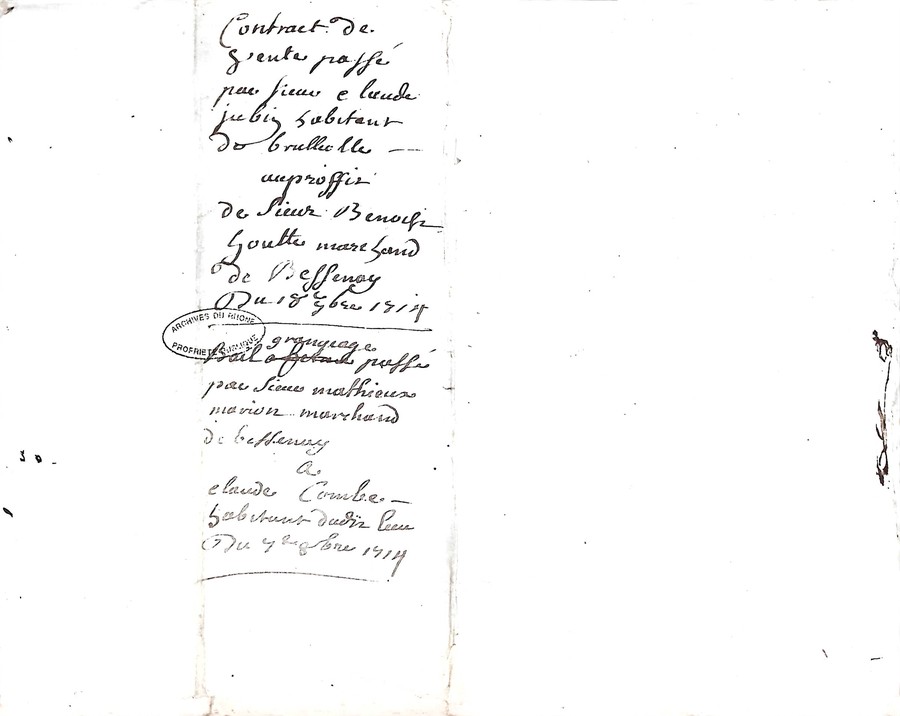 Contract de
vente passé
par sieur claude
jubin habitant
de brullolle —
au proffit
de sieur Benoist
Goutte marchand
de Bessenay
Du 18e 9bre 1714
ARCHIVES DU RHONE
PROPRIETE PUBLIQUE
grangeage
Bail passé
par sieur mathieux
marion marchand
de bessenay
a
claude Combe —
habitant dudit lieu
Du 1714